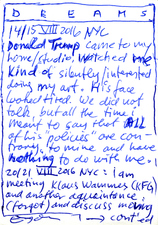 DREAMS
14/15 VIII 2016 NYC
Donald Trump came to my
home/studio, watched me
kind of silently/interested
doing my art. His face
looked tired. We did not
talk, but all the time I
meant to say that ALL
of his "policies" are con-
trary to mine and have
nothing to do with me.
20/21 VIII 2016 NYC: I am
meeting Klaus Wammes (KFG)
and another aquaintance
(forgot) and discuss moving
→ cont'ed